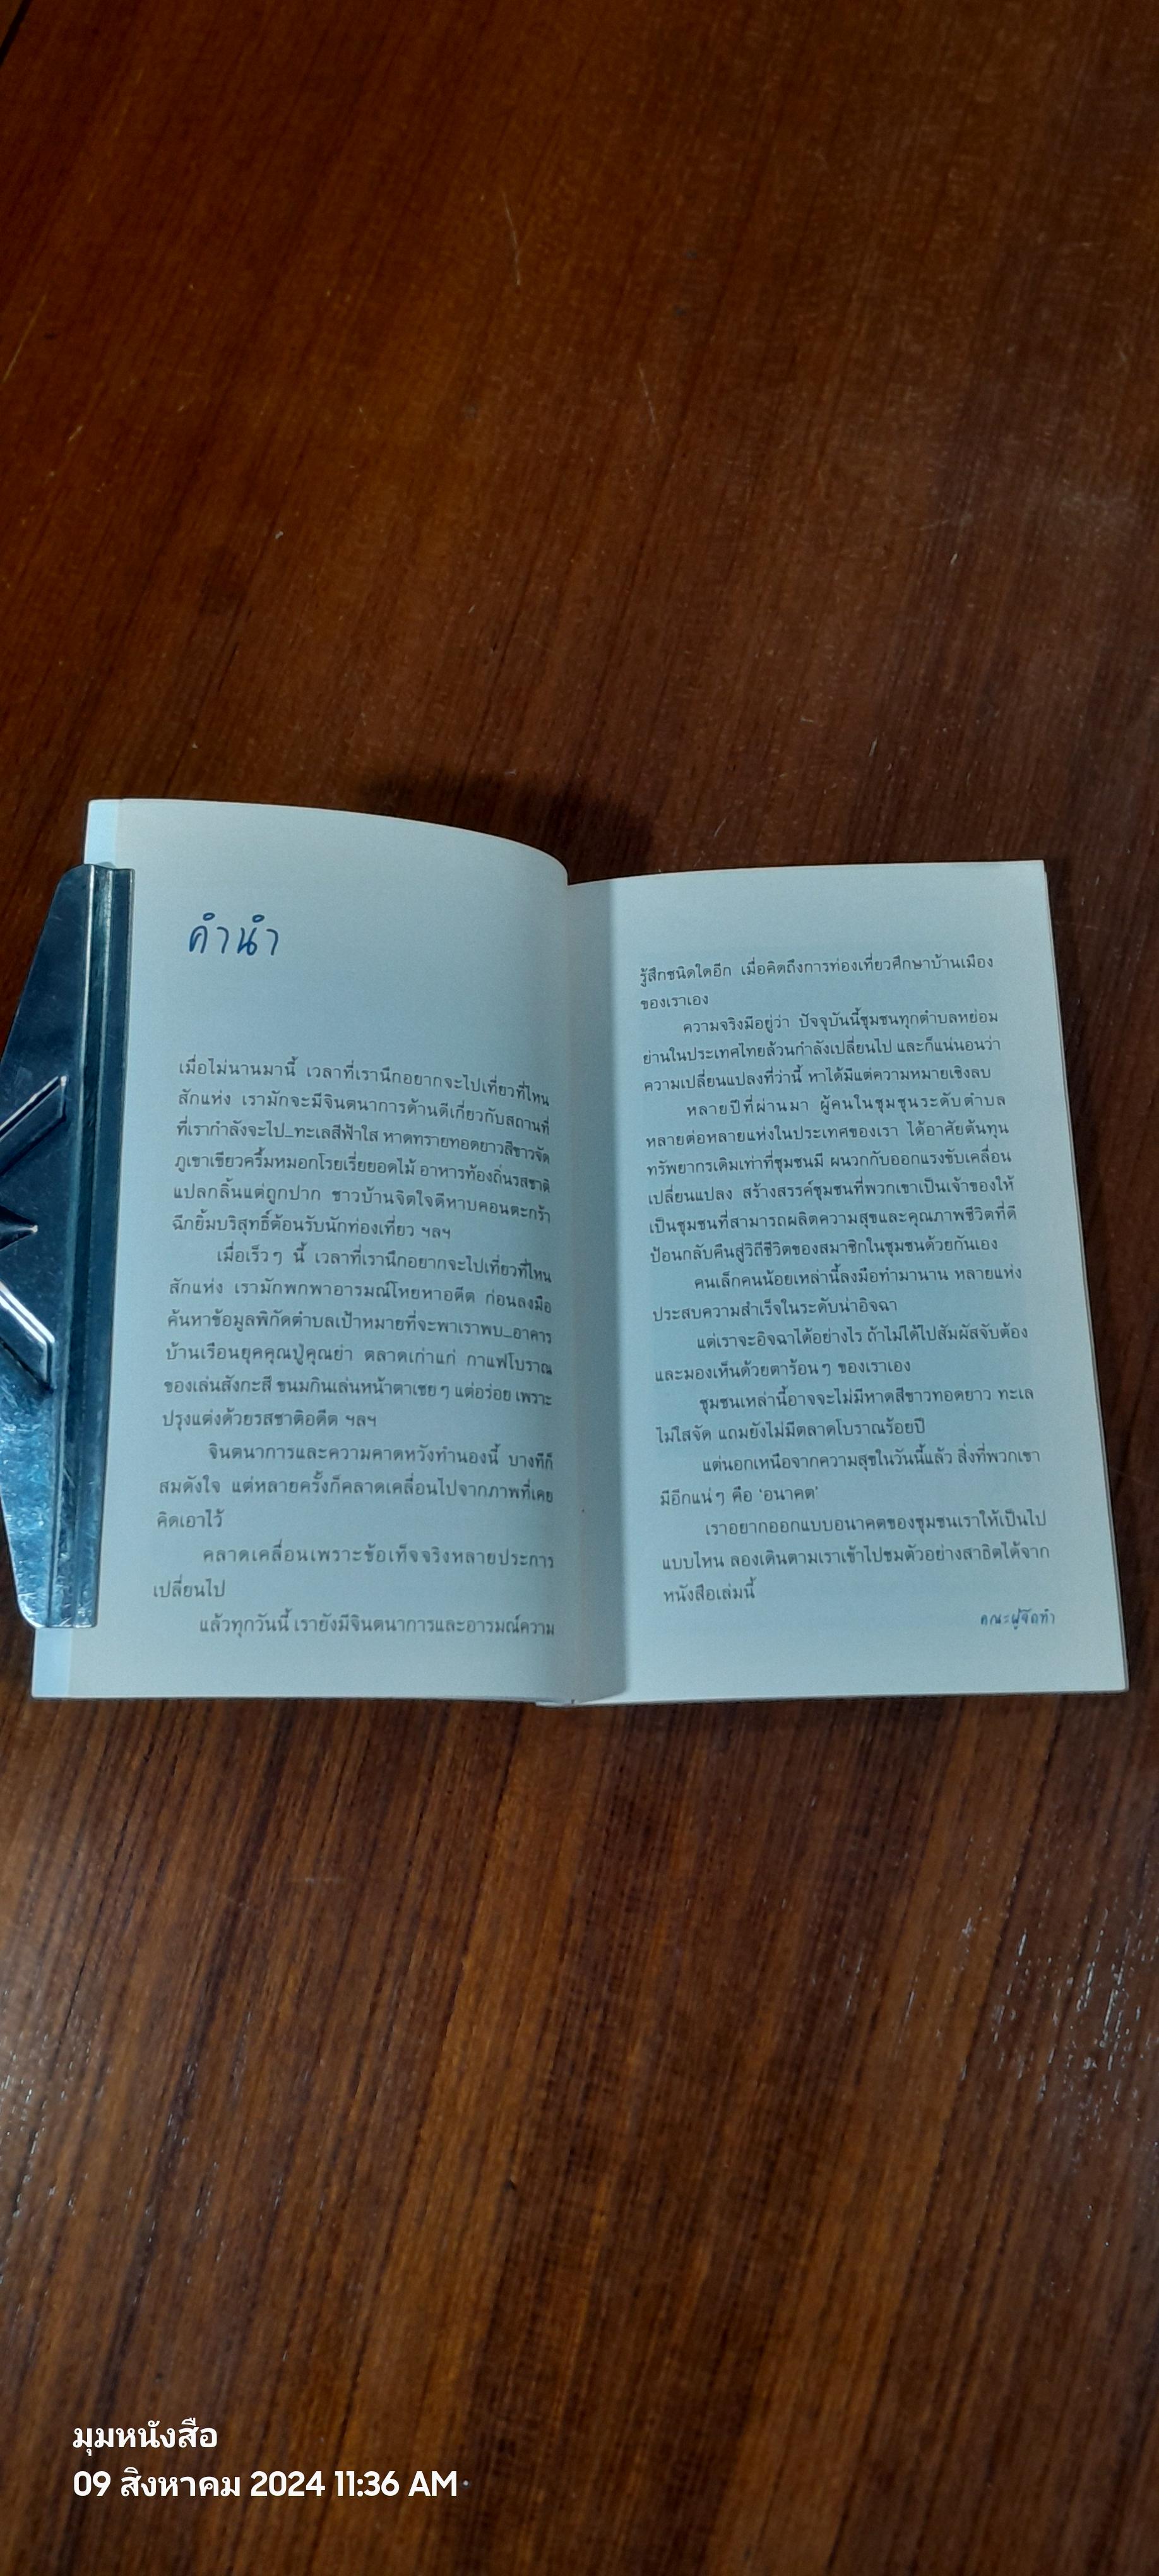 คำนำ
เมื่อไม่นานมานี้ เวลาที่เรานึกอยากจะไปเที่ยวที่ไหน
สักแห่ง เรามักจะมีจินตนาการด้านดีเกี่ยวกับสถานที่
ที่เรากำลังจะไป_ทะเลสีฟ้าใส หาดทรายทอดยาวสีขาวจัด
ภูเขาเขียวครึ้มหมอกโรยเรี่ยยอดไม้ อาหารท้องถิ่นรสชาติ
แปลกลิ้นแต่ถูกปาก ชาวบ้านจิตใจดีหาบคอนตะกร้า
ฉีกยิ้มบริสุทธิ์ต้อนรับนักท่องเที่ยว ฯลฯ
เมื่อเร็วๆ นี้ เวลาที่เรานึกอยากจะไปเที่ยวที่ไหน
สักแห่ง เรามักพกพาอารมณ์โหยหาอดีต ก่อนลงมือ
ค้นหาข้อมูลพิกัดตำบลเป้าหมายที่จะพาเราพบ_อาคาร
บ้านเรือนยุคคุณปู่คุณย่า ตลาดเก่าแก่ กาแฟโบราณ
ของเล่นสังกะสี ขนมกินเล่นหน้าตาเชยๆ แต่อร่อย เพราะ
ปรุงแต่งด้วยรสชาติอดีต ฯลฯ
จินตนาการและความคาดหวังทำนองนี้ บางทีก็
สมดังใจ แต่หลายครั้งก็คลาดเคลื่อนไปจากภาพที่เคย
คิดเอาไว้
คลาดเคลื่อนเพราะข้อเท็จจริงหลายประการ
เปลี่ยนไป
แล้วทุกวันนี้ เรายังมีจินตนาการและอารมณ์ความ
รู้สึกชนิดใดอีก เมื่อคิดถึงการท่องเที่ยวศึกษาบ้านเมือง
ของเราเอง
ความจริงมีอยู่ว่า ปัจจุบันนี้ชุมชนทุกตำบลหย่อม
ย่านในประเทศไทยล้วนกำลังเปลี่ยนไป และก็แน่นอนว่า
ความเปลี่ยนแปลงที่ว่านี้ หาได้มีแต่ความหมายเชิงลบ
หลายปีที่ผ่านมา ผู้คนในชุมชนระดับตำบล
หลายต่อหลายแห่งในประเทศของเรา ได้อาศัยต้นทุน
ทรัพยากรเดิมเท่าที่ชุมชนมี ผนวกกับออกแรงขับเคลื่อน
เปลี่ยนแปลง สร้างสรรค์ชุมชนที่พวกเขาเป็นเจ้าของให้
เป็นชุมชนที่สามารถผลิตความสุขและคุณภาพชีวิตที่ดี
ป้อนกลับคืนสู่วิถีชีวิตของสมาชิกในชุมชนด้วยกันเอง
คนเล็กคนน้อยเหล่านี้ลงมือทำมานาน หลายแห่ง
ประสบความสำเร็จในระดับน่าอิจฉา
แต่เราจะอิจฉาได้อย่างไร ถ้าไม่ได้ไปสัมผัสจับต้อง
และมองเห็นด้วยตาร้อนๆ ของเราเอง
ชุมชนเหล่านี้อาจจะไม่มีหาดสีขาวทอดยาว ทะเล
ไม่ใสจัด แถมยังไม่มีตลาดโบราณร้อยปี
แต่นอกเหนือจากความสุขในวันนี้แล้ว สิ่งที่พวกเขา
มีอีกแน่ๆ คือ ‘อนาคต’
เราอยากออกแบบอนาคตของชุมชนเราให้เป็นไป
แบบไหน ลองเดินตามเราเข้าไปชมตัวอย่างสาธิตได้จาก
หนังสือเล่มนี้
คณะผู้จัดทำ
มุมหนังสือ
09 สิงหาคม 2024 11:36 AM